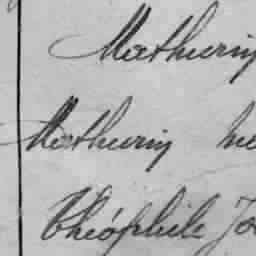 Mathurin
Mathurin
Théophile